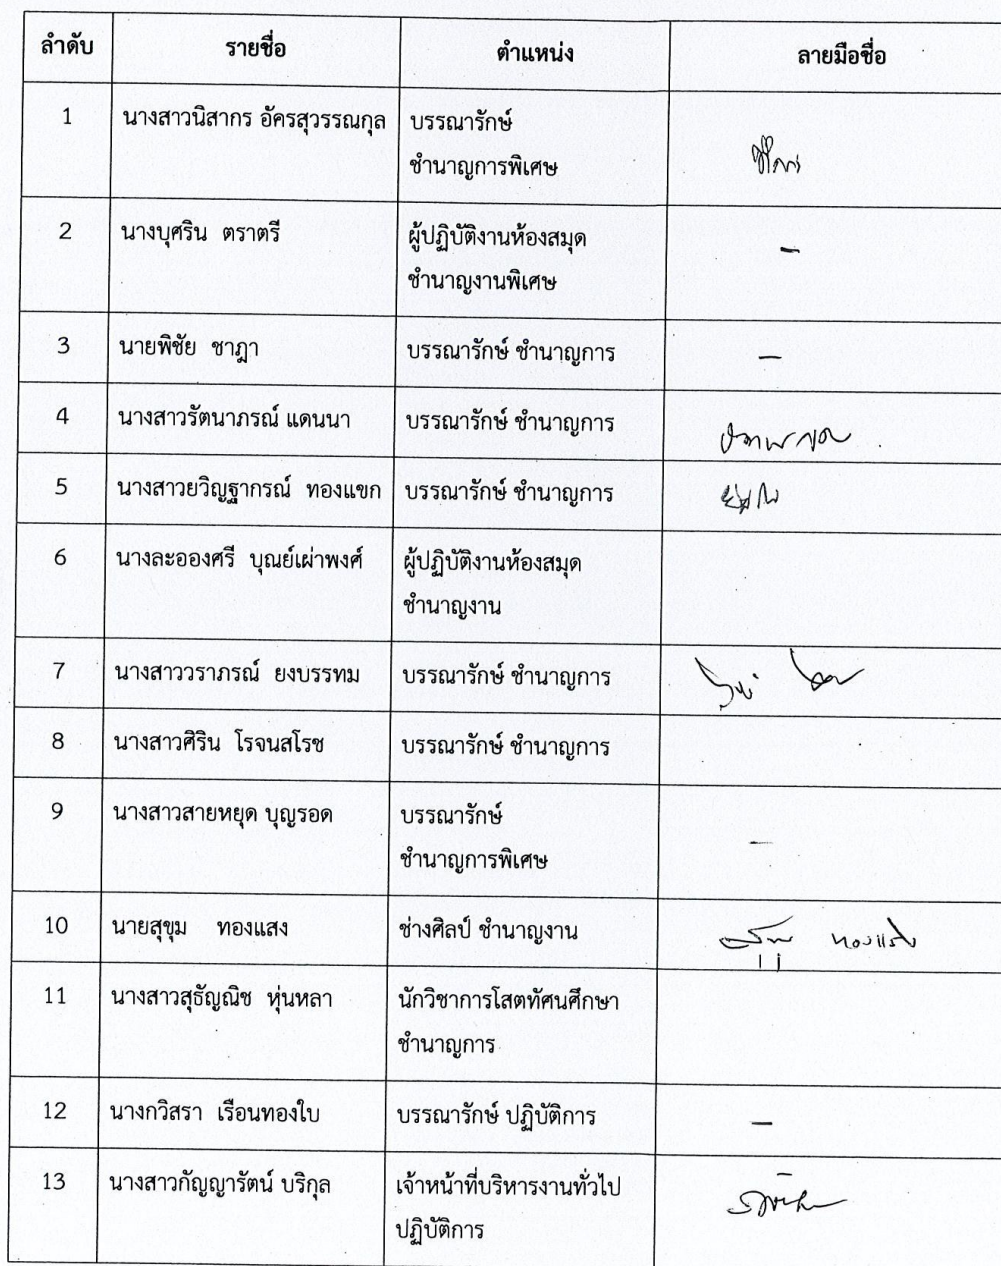 ลำดับ รายชื่อ ตำแหน่ง ลายมือชื่อ
1 นางสาวนิสากร อัครสุวรรณกุล บรรณารักษ์
ชำนาญการพิเศษ
2 นางบุศริน ตราตรี ผู้ปฏิบัติงานห้องสมุด –
ชำนาญงานพิเศษ
3 นายพิชัย ชาฎา บรรณารักษ์ ชำนาญการ –
4 นางสาวรัตนาภรณ์ แดนนา บรรณารักษ์ ชำนาญการ
5 นางสาวยวิญฐากรณ์ ทองแขก บรรณารักษ์ ชำนาญการ
6 นางละอองศรี บุณย์เผ่าพงศ์ ผู้ปฏิบัติงานห้องสมุด
ชำนาญงาน
7 นางสาววราภรณ์ ยงบรรทม บรรณารักษ์ ชำนาญการ
8 นางสาวศิริน โรจนสโรช บรรณารักษ์ ชำนาญการ
9 นางสาวสายหยุด บุญรอด บรรณารักษ์ –
ชำนาญการพิเศษ
10 นายสุขุม ทองแสง ช่างศิลป์ ชำนาญงาน
11 นางสาวสุธัญณิช หุ่นหลา นักวิชาการโสตทัศนศึกษา
ชำนาญการ
12 นางกวิสรา เรือนทองใบ บรรณารักษ์ ปฏิบัติการ –
13 นางสาวกัญญารัตน์ บริกุล เจ้าหน้าที่บริหารงานทั่วไป
ปฏิบัติการ